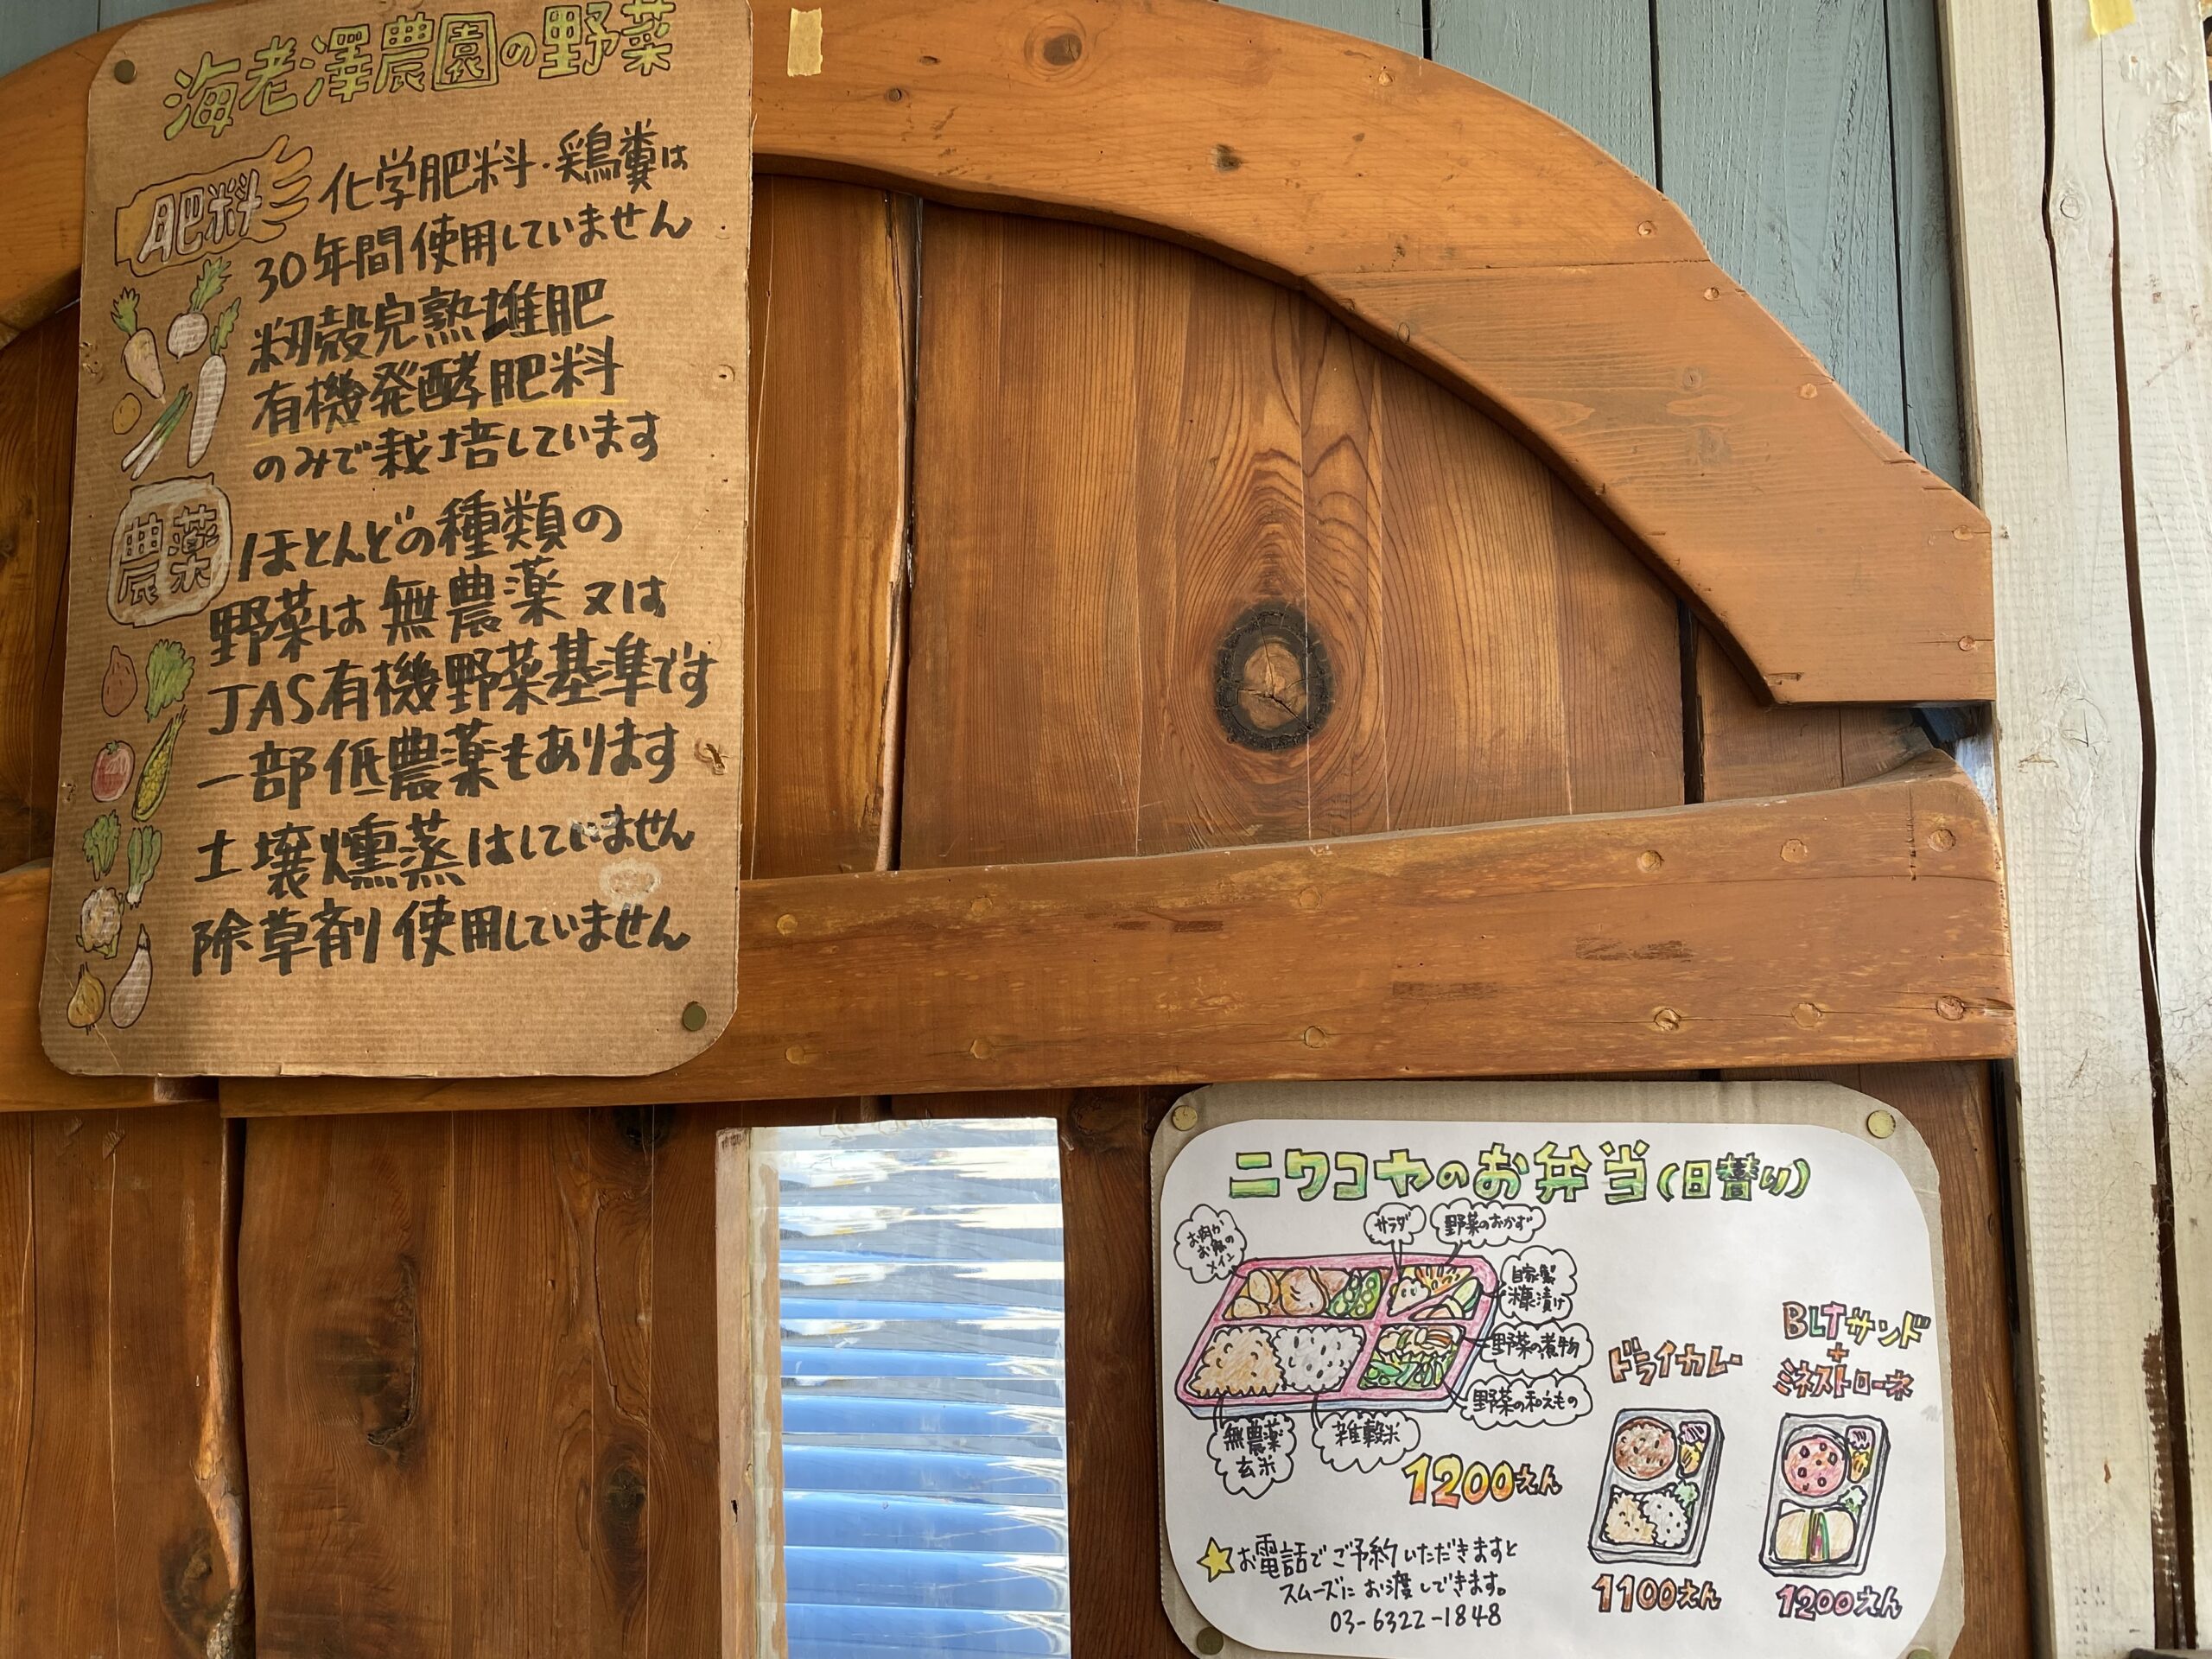 海老澤農園の野菜
肥料
化学肥料・鶏糞は
30年間使用していません
籾殻完熟堆肥
有機発酵肥料
のみで栽培しています
農薬
ほとんどの種類の
野菜は無農薬又は
JAS有機野菜基準です
一部低農薬もあります
土壌燻蒸はしていません
除草剤使用していません
ニワコヤのお弁当(日替り)
お肉か
お魚の
メイン
サラダ
野菜のおかず
自家製
糠漬け
野菜の煮物
野菜の和えもの
無農薬
玄米
雑穀米
1200えん
ドライカレー
1100えん
BLTサンド
+
ミネストローネ
1200えん
お電話でご予約いただきますと
スムーズにお渡しできます。
03-6322-1848